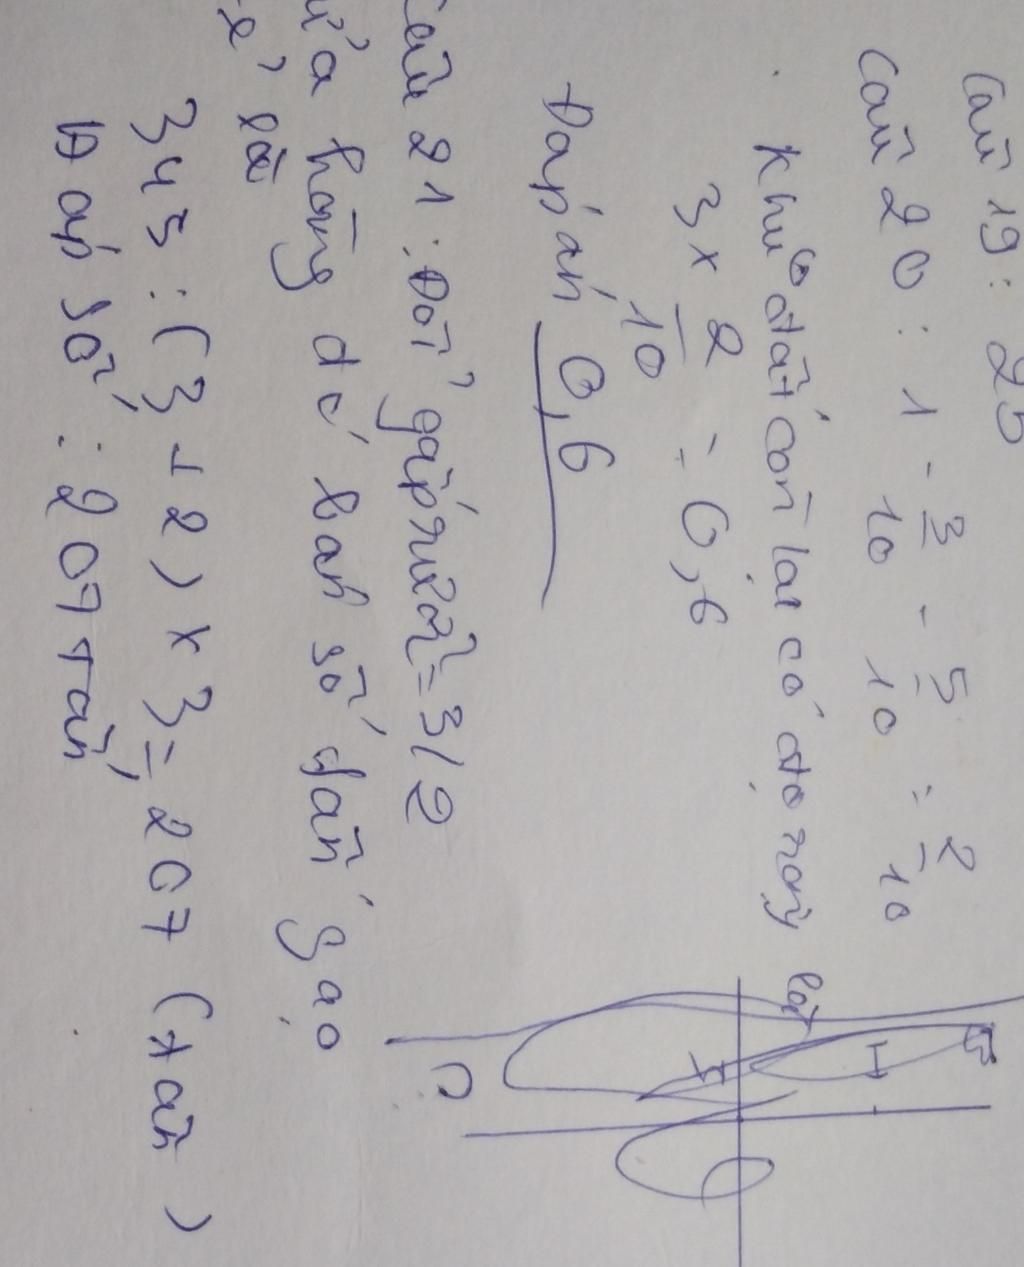 Câu 19: 25
Câu 20: 1 - 3/10 - 5/10 = 2/10
Khu đất còn lại có độ rộng là
3 x 2/10 = 0,6
Đáp án 0,6
Câu 21: Đổi gấp rưỡi = 3/2
hàng đó ban số tấn gạo
là
345 : (3 + 2) x 3 = 207 (tấn)
Đáp số: 207 tấn